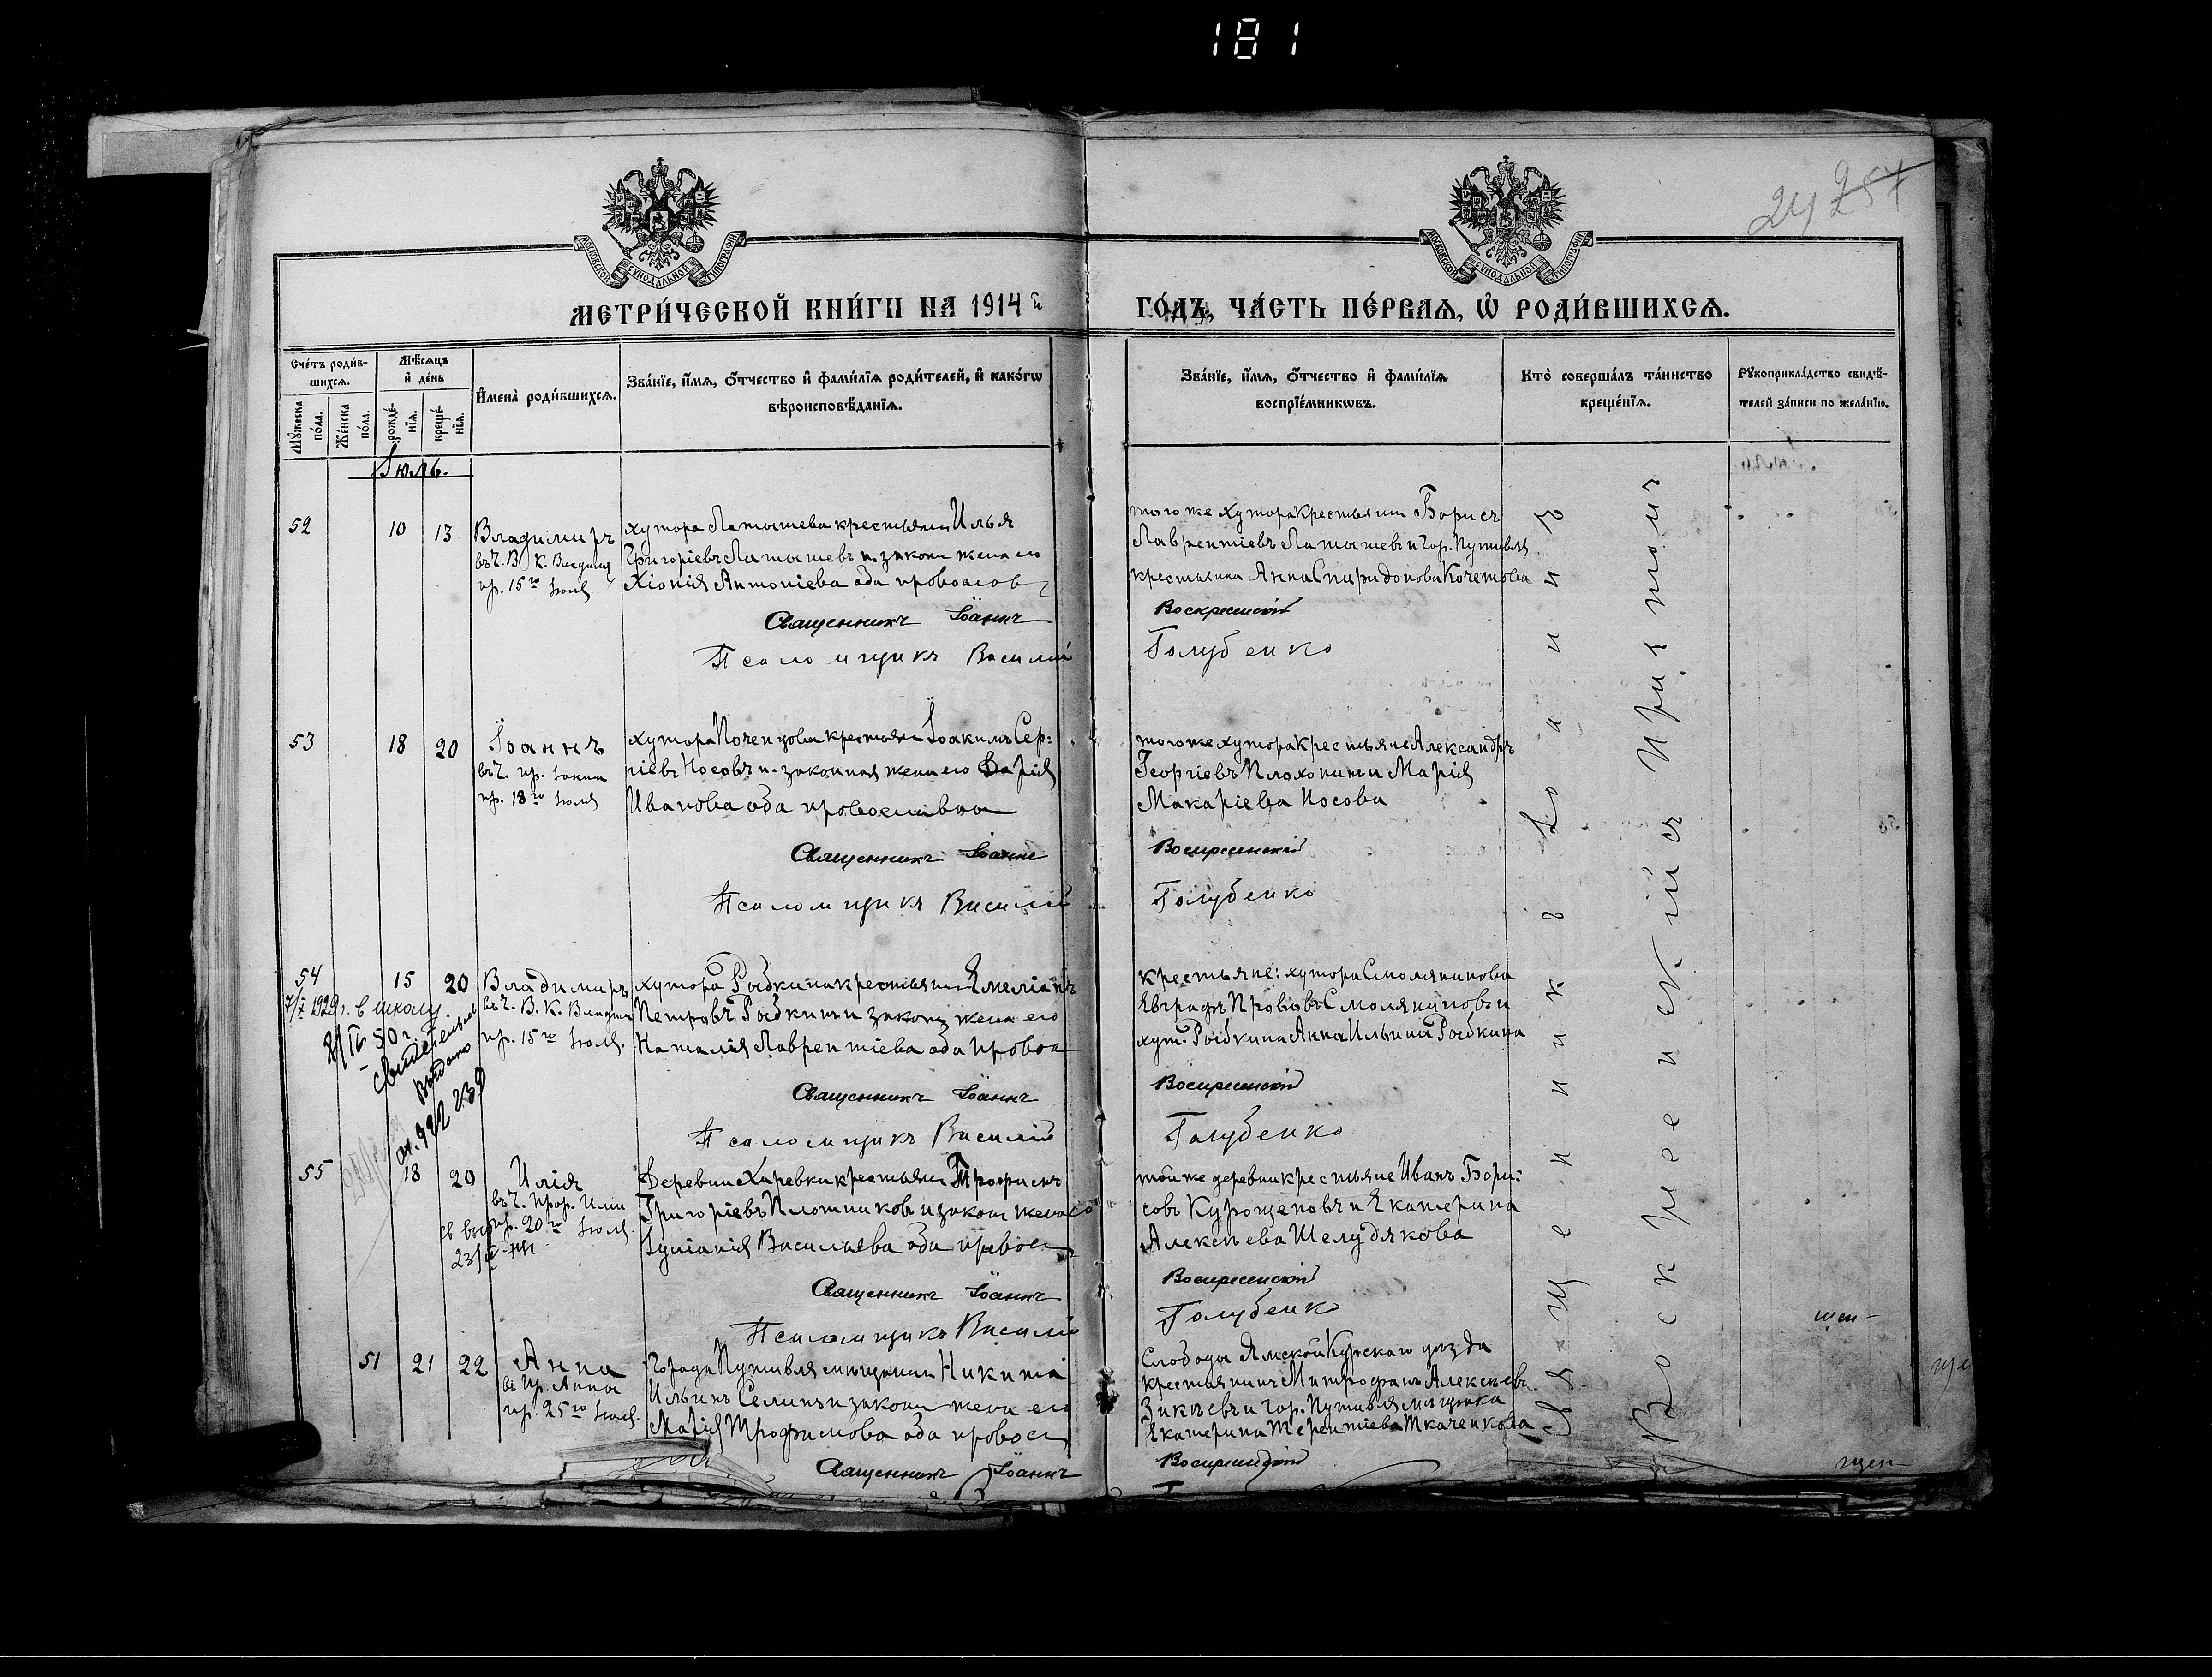 181
24 257
МОСКОВСКОЙ СѴНОДАЛЬНОЙ ТИПОГРАФІИ
МОСКОВСКОЙ СѴНОДАЛЬНОЙ ТИПОГРАФІИ
МЕТРИ́ЧЕСКОЙ КНИ́ГИ НА 1914 й
ГО́ДЪ, ЧА́СТЬ ПЕ́РВАѦ, Ѡ҆ РОДИ́ВШИХСѦ.
Сче́тъ роди́в-
шихсѧ.
Мꙋ́жеска
по́ла.
Же́нска
по́ла.
Мѣ́сѧцъ
и҆ де́нь
рожде́-
нїѧ.
креще́-
нїѧ.
И҆мена̀ роди́вшихсѧ.
Зва́нїе, и҆́мѧ, ѻ҆́тчество и҆ фами́лїѧ роди́телей, и҆ како́гѡ
вѣроисповѣ́данїѧ.
Зва́нїе, и҆́мѧ, ѻ҆́тчество и҆ фами́лїѧ
воспрїе́мникѡвъ.
Кто̀ соверша́лъ та́инство
креще́нїѧ.
Рꙋкоприкла́дство свидѣ́-
телей за́писи по жела́нїю.
Іюль.
52
10
13
Владимиръ
въ ч. В. К. Владим
пр. 15го Іюля.
хутора Латышева крестьянин Илья
Григоріевъ Латышевъ и законн жена его
Хіонія Антоніева оба правослов
того же хутора крестьянин Борисъ
Лаврентіевъ Латышевъ и гор. Путивля
крестьянка Анна Спиридонова Кочетова
Священникъ Іоаннъ
Воскресенскій
Псаломщикъ Василій
Голубенко
53
18
20
Іоаннъ
въ ч. пр. Іоанна
пр. 18го Іюля
хутора Поченцова крестьян Іоакимъ Сер:
гіевъ Носовъ и законная жена его Дарія
Иванова оба православна
того же хутора крестьяне Александръ
Георгіевъ Плохонинъ и Марія
Макаріева Носова
Священникъ Іоаннъ
Воскресенскій
Псаломщикъ Василій
Голубенко
54
15
20
Владимиръ
въ ч. В. К. Владим
пр. 15го Іюля.
хутора Рыбкина крестьянин Емеліанъ
Петровъ Рыбкинъ и законн жена его
Наталія Лаврентіева оба провос
крестьяне: хутора Смолянинова
Евграфъ Прововъ Смоляниновъ и
хут. Рыбкина Анна Ильина Рыбкина
1929 г. в школу
свидетельст
выдано
Священникъ Іоаннъ
Воскресенскій
Псаломщикъ Василій
Голубенко
55
18
20
Илія
въ ч. Прор. Иліи
пр. 20го Іюля.
Деревни Харевки крестьянин Трофимъ
Григоріевъ Плотниковъ и законн жена его
Іуліанія Васильева оба правос
той же деревни крестьяне Иванъ Бори:
совъ Курощеповъ и Екатерина
Алексѣева Шелудякова
Священникъ Іоаннъ
Воскресенскій
Псаломщикъ Василій
Голубенко
51
21
22
Анна
въ ч. Анны
пр. 25го Іюля.
Города Путивля мѣщанин Никита
Ильинъ Селинъ и законн жена его
Марія Трофимова оба правос
Слободы Ямской Курскаго уѣзда
крестьянинъ Митрофанъ Алексѣевъ
Зикѣевъ и гор. Путивля мѣщанка
Екатерина Терентіева Ткаченкова
Священникъ Іоаннъ
Воскресенскій
Священникъ Іоаннъ
Воскресенскій съ Причтомъ